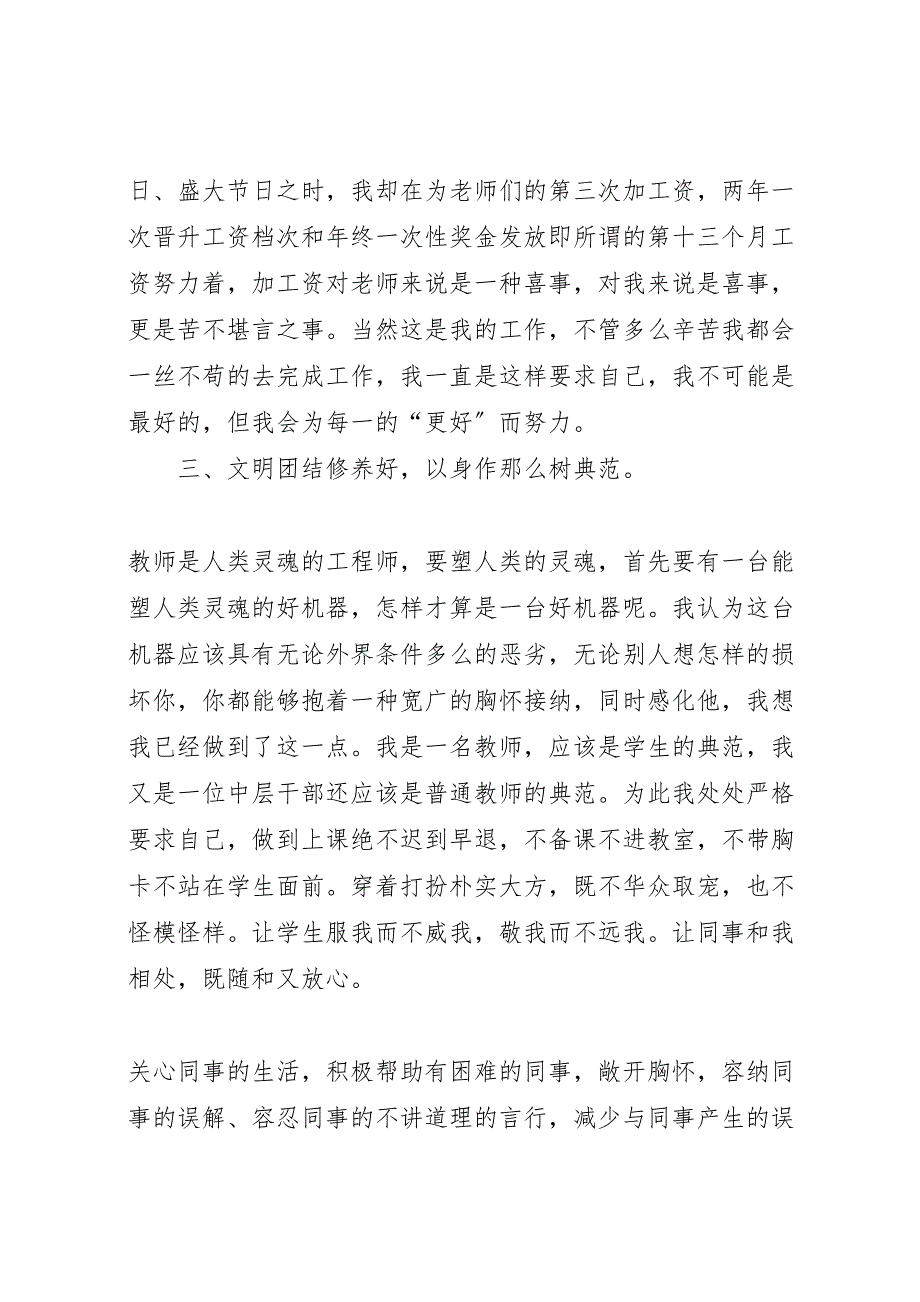 日、盛大节日之时，我却在为老师们的第三次加工资，两年一
次晋升工资档次和年终一次性奖金发放即所谓的第十三个月工
资努力着，加工资对老师来说是一种喜事，对我来说是喜事，
更是苦不堪言之事。当然这是我的工作，不管多么辛苦我都会
一丝不苟的去完成工作，我一直是这样要求自己，我不可能是
最好的，但我会为每一的“更好〞而努力。
三、文明团结修养好，以身作那么树典范。
教师是人类灵魂的工程师，要塑人类的灵魂，首先要有一台能
塑人类灵魂的好机器，怎样才算是一台好机器呢。我认为这台
机器应该具有无论外界条件多么的恶劣，无论别人想怎样的损
坏你，你都能够抱着一种宽广的胸怀接纳，同时感化他，我想
我已经做到了这一点。我是一名教师，应该是学生的典范，我
又是一位中层干部还应该是普通教师的典范。为此我处处严格
要求自己，做到上课绝不迟到早退，不备课不进教室，不带胸
卡不站在学生面前。穿着打扮朴实大方，既不华众取宠，也不
怪模怪样。让学生服我而不威我，敬我而不远我。让同事和我
相处，既随和又放心。
关心同事的生活，积极帮助有困难的同事，敞开胸怀，容纳同
事的误解、容忍同事的不讲道理的言行，减少与同事产生的误